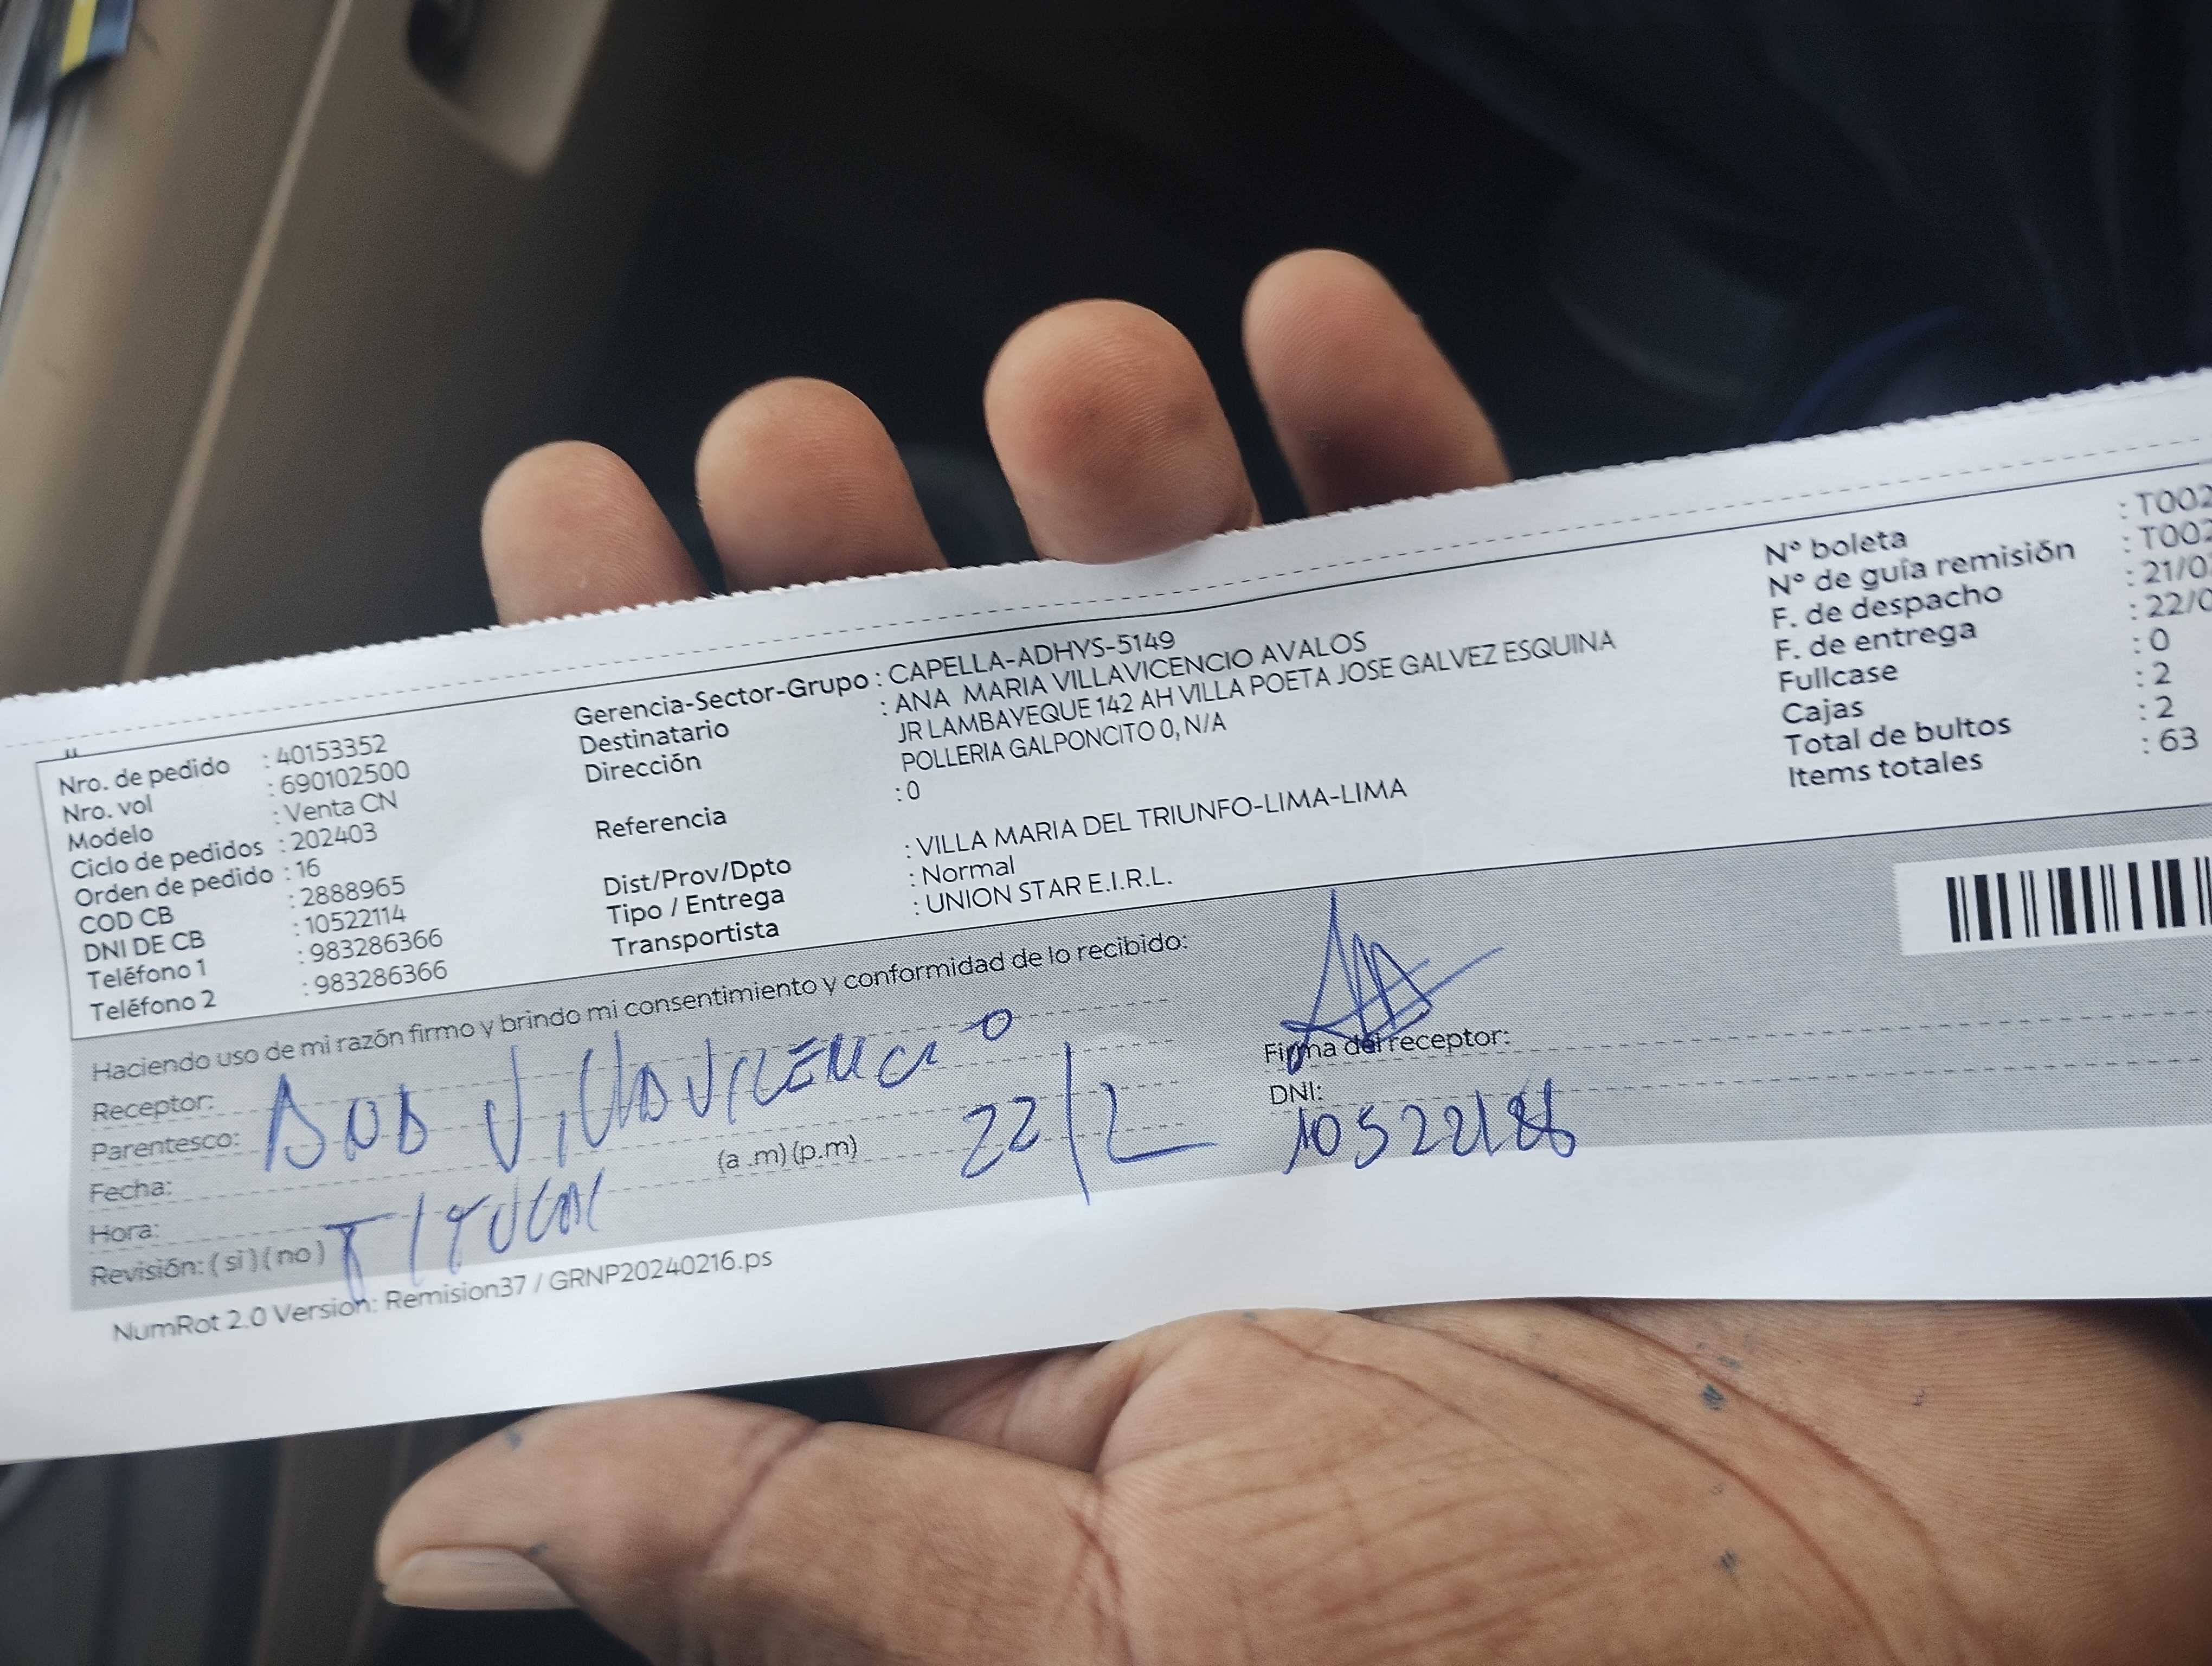 Nro. de pedido : 40153352
Nro. vol : 690102500
Modelo : Venta CN
Ciclo de pedidos : 202403
Orden de pedido : 16
COD CB : 2888965
DNI DE CB : 10522114
Teléfono 1 : 983286366
Teléfono 2 : 983286366
Gerencia-Sector-Grupo : CAPELLA-ADHYS-5149
Destinatario : ANA MARIA VILLAVICENCIO AVALOS
Dirección JR LAMBAYEQUE 142 AH VILLA POETA JOSE GALVEZ ESQUINA
POLLERIA GALPONCITO 0, N/A
Referencia : 0
Dist/Prov/Dpto : VILLA MARIA DEL TRIUNFO-LIMA-LIMA
Tipo / Entrega : Normal
Transportista : UNION STAR E.I.R.L.
N° boleta : T002
N° de guía remisión : T002
F. de despacho : 21/0
F. de entrega : 22/0
Fullcase : 0
Cajas : 2
Total de bultos : 2
Items totales : 63
Haciendo uso de mi razón firmo y brindo mi consentimiento y conformidad de lo recibido:
Receptor:
Parentesco: Villavicencio
Fecha: (a .m) (p.m) 22/2
Hora:
Revisión: ( si ) ( no ) TITULAR
Firma del receptor:
DNI:
NumRot 2.0 Version: Remision37 / GRNP20240216.ps